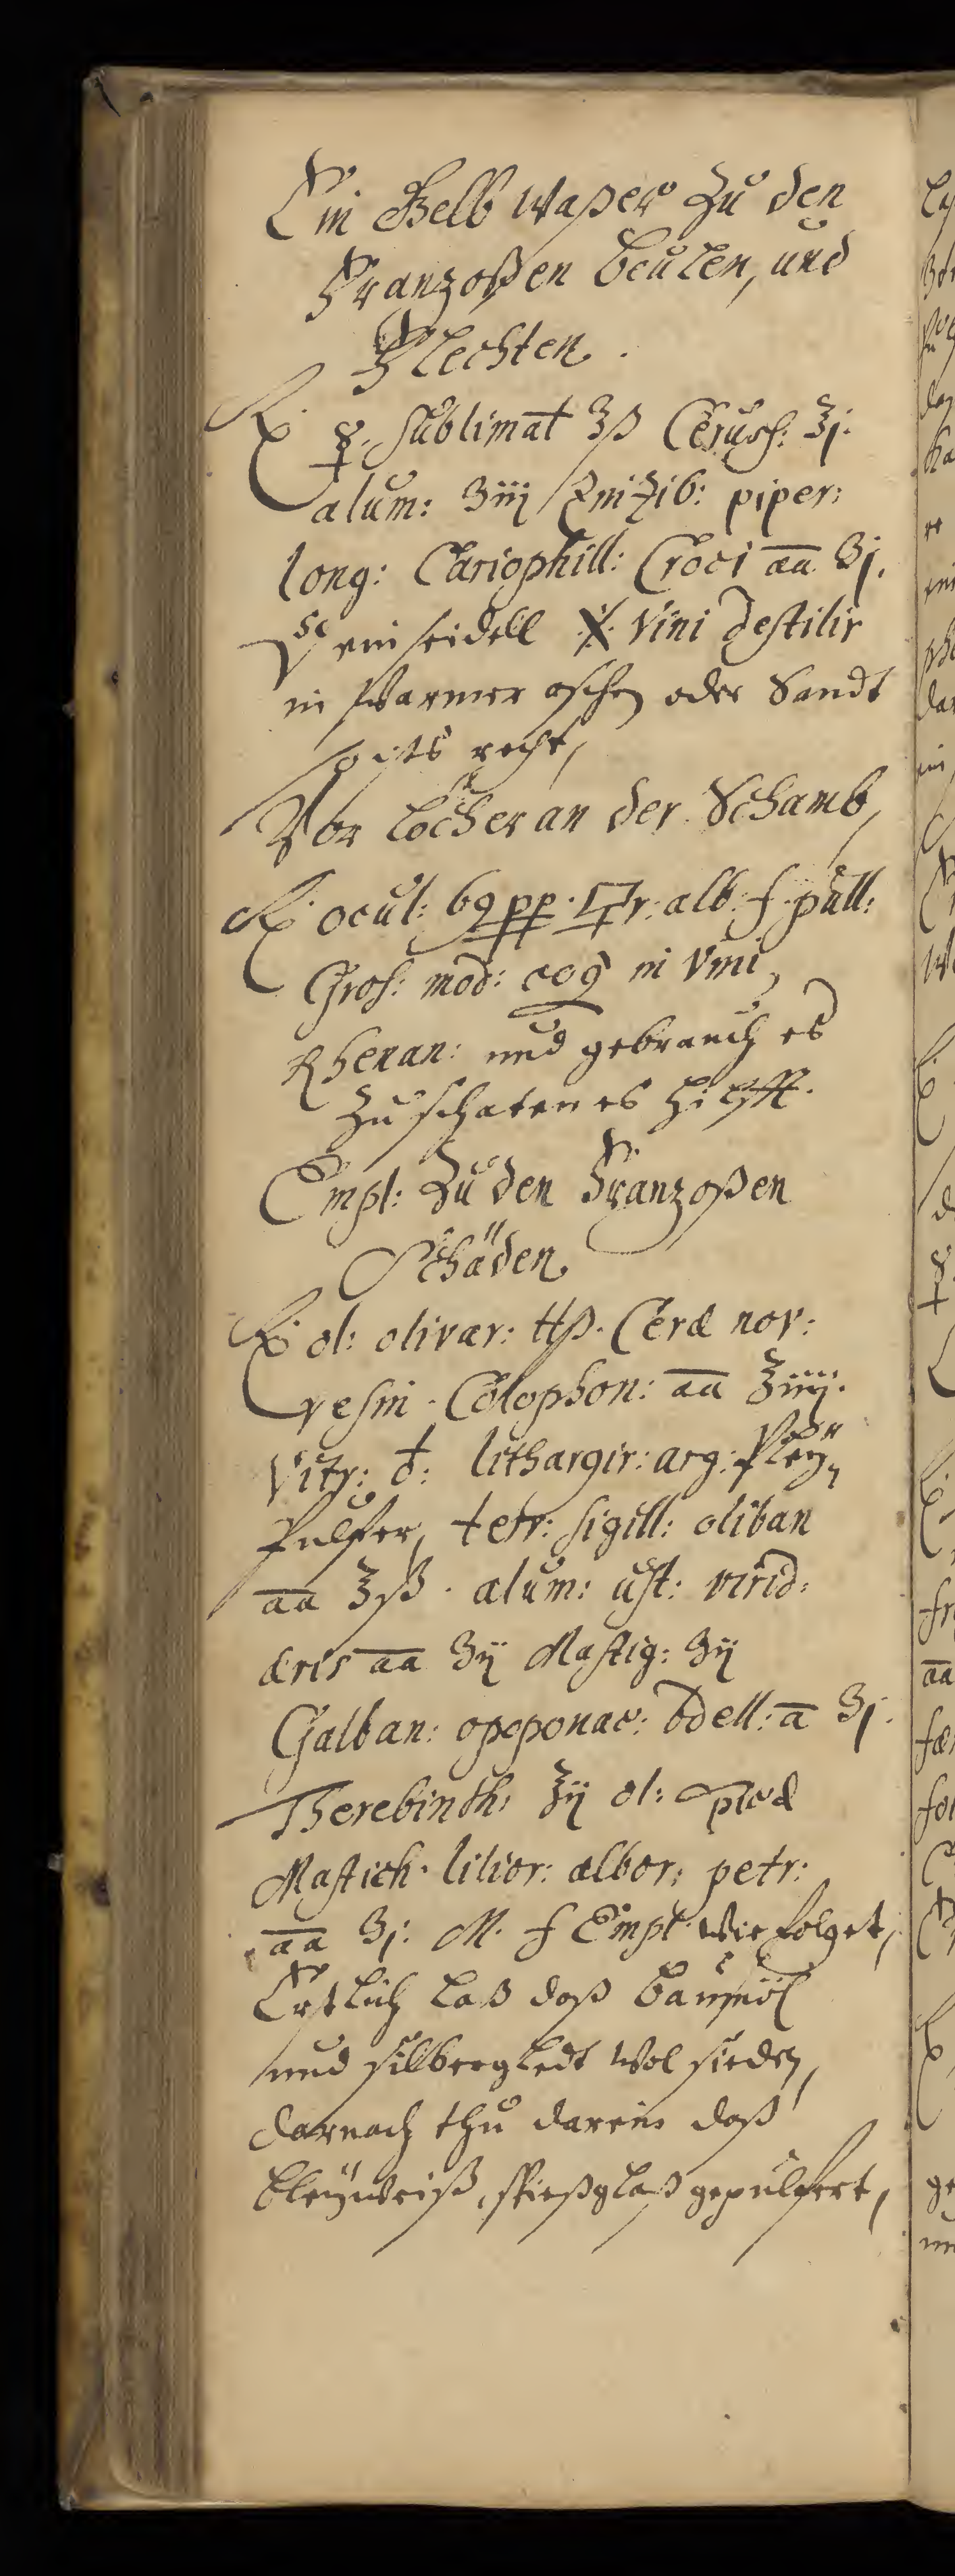 Ein Gelb Waßer Zu den
Franzoßen beulen, und
Flechten.
℞. ☿. sublimat ʒß Ceruss: ʒj.
alum: ʒiij Zinzib: piper:
long: Cariophill: Croci aa ʒj.
ein seidell vini destilir
in Warmer aschen oder Sandt
so ists recht,
Vor Löcher an der Schamb,
℞. ocul: 69 pp. r: alb: f. pull:
Gros: mod: coq in Vini
Rhenan: und gebrauch es
Zu schaten es hilfft.
Empl: Zu den Franzoßen
Schäden
℞. ol: olivar: ℔ß. Ceræ nov:
resin. Colophon: aa ℥iiij.
Vitr: ♁: lithargir: arg: Pley
Pulfer, terr: sigill: oliban
aa ℥ß. alum: ust: virid:
æris aa ʒij Mastig: ʒij
Galban: opoponac: bdell: a ʒj.
Therebinth: ℥ij ol: spicæ
Mastich. lilior: albor: petr:
aa ʒj. M. f Empl. wie folget,
Erstlich laß daß baumöl
und silbergledt wol sieden,
darnach thu darein daß
bleyweiß, spießglaß gepulfert,